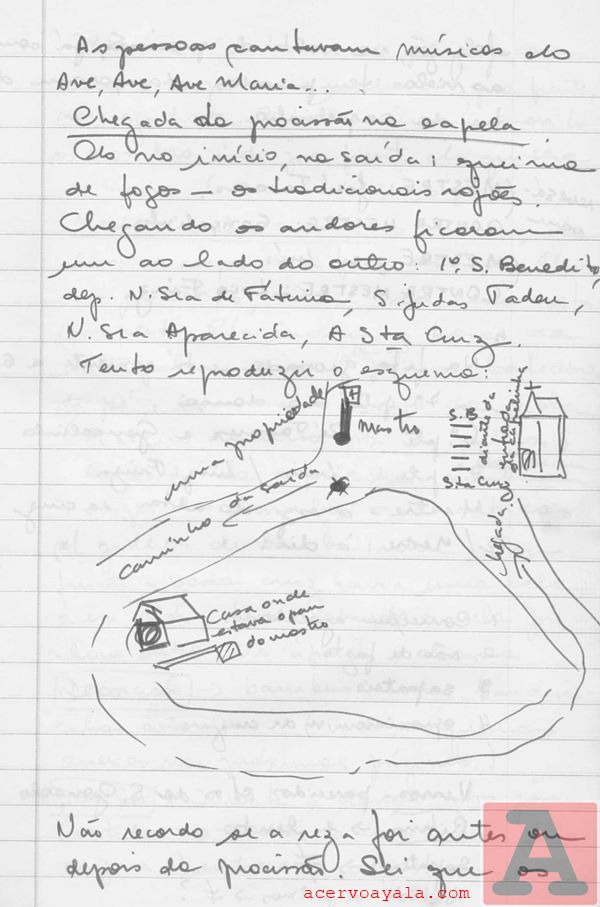 As pessoas cantavam músicas do
Ave, Ave, Ave Maria...
Chegada da procissão na capela
Como no início, na saída: queima
de fogos – os tradicionais rojões.
Chegando os andores ficaram
um ao lado do outro: 1º. S. Benedito,
dep. N. Sra de Fátima, S. Judas Tadeu,
N. Sra Aparecida, A Sta Cruz.
Tento reproduzir o esquema:
uma propriedade
mastro
caminho da saída
S.B
Sta Cruz
diante da
chegada
Casa onde
estava o pau
do mastro
Não recordo se a reza foi antes ou
depois da procissão. Sei que os
A
acervoayala.com